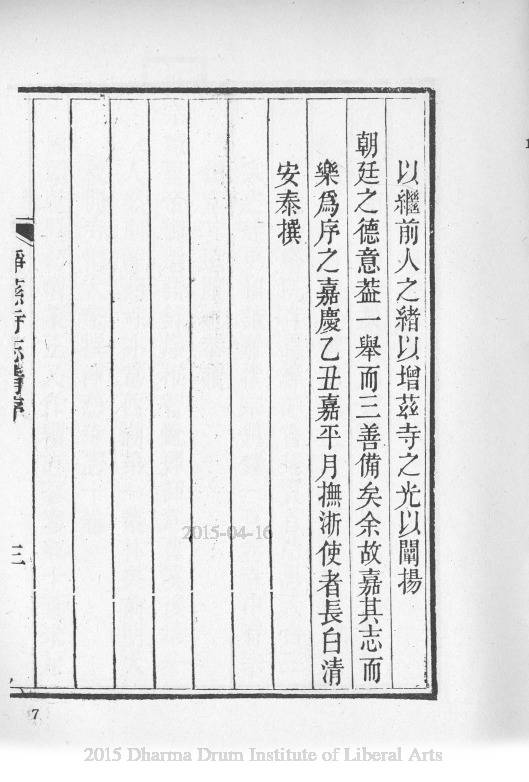 以繼前人之緒以增茲寺之光以闡揚
朝廷之德意葢一舉而三善備矣余故嘉其志而
樂爲序之嘉慶乙丑嘉平月撫浙使者長白清
安泰撰
慈寺志清序
三
7
2015-04-16
2015 Dharma Drum Institute of Liberal Arts